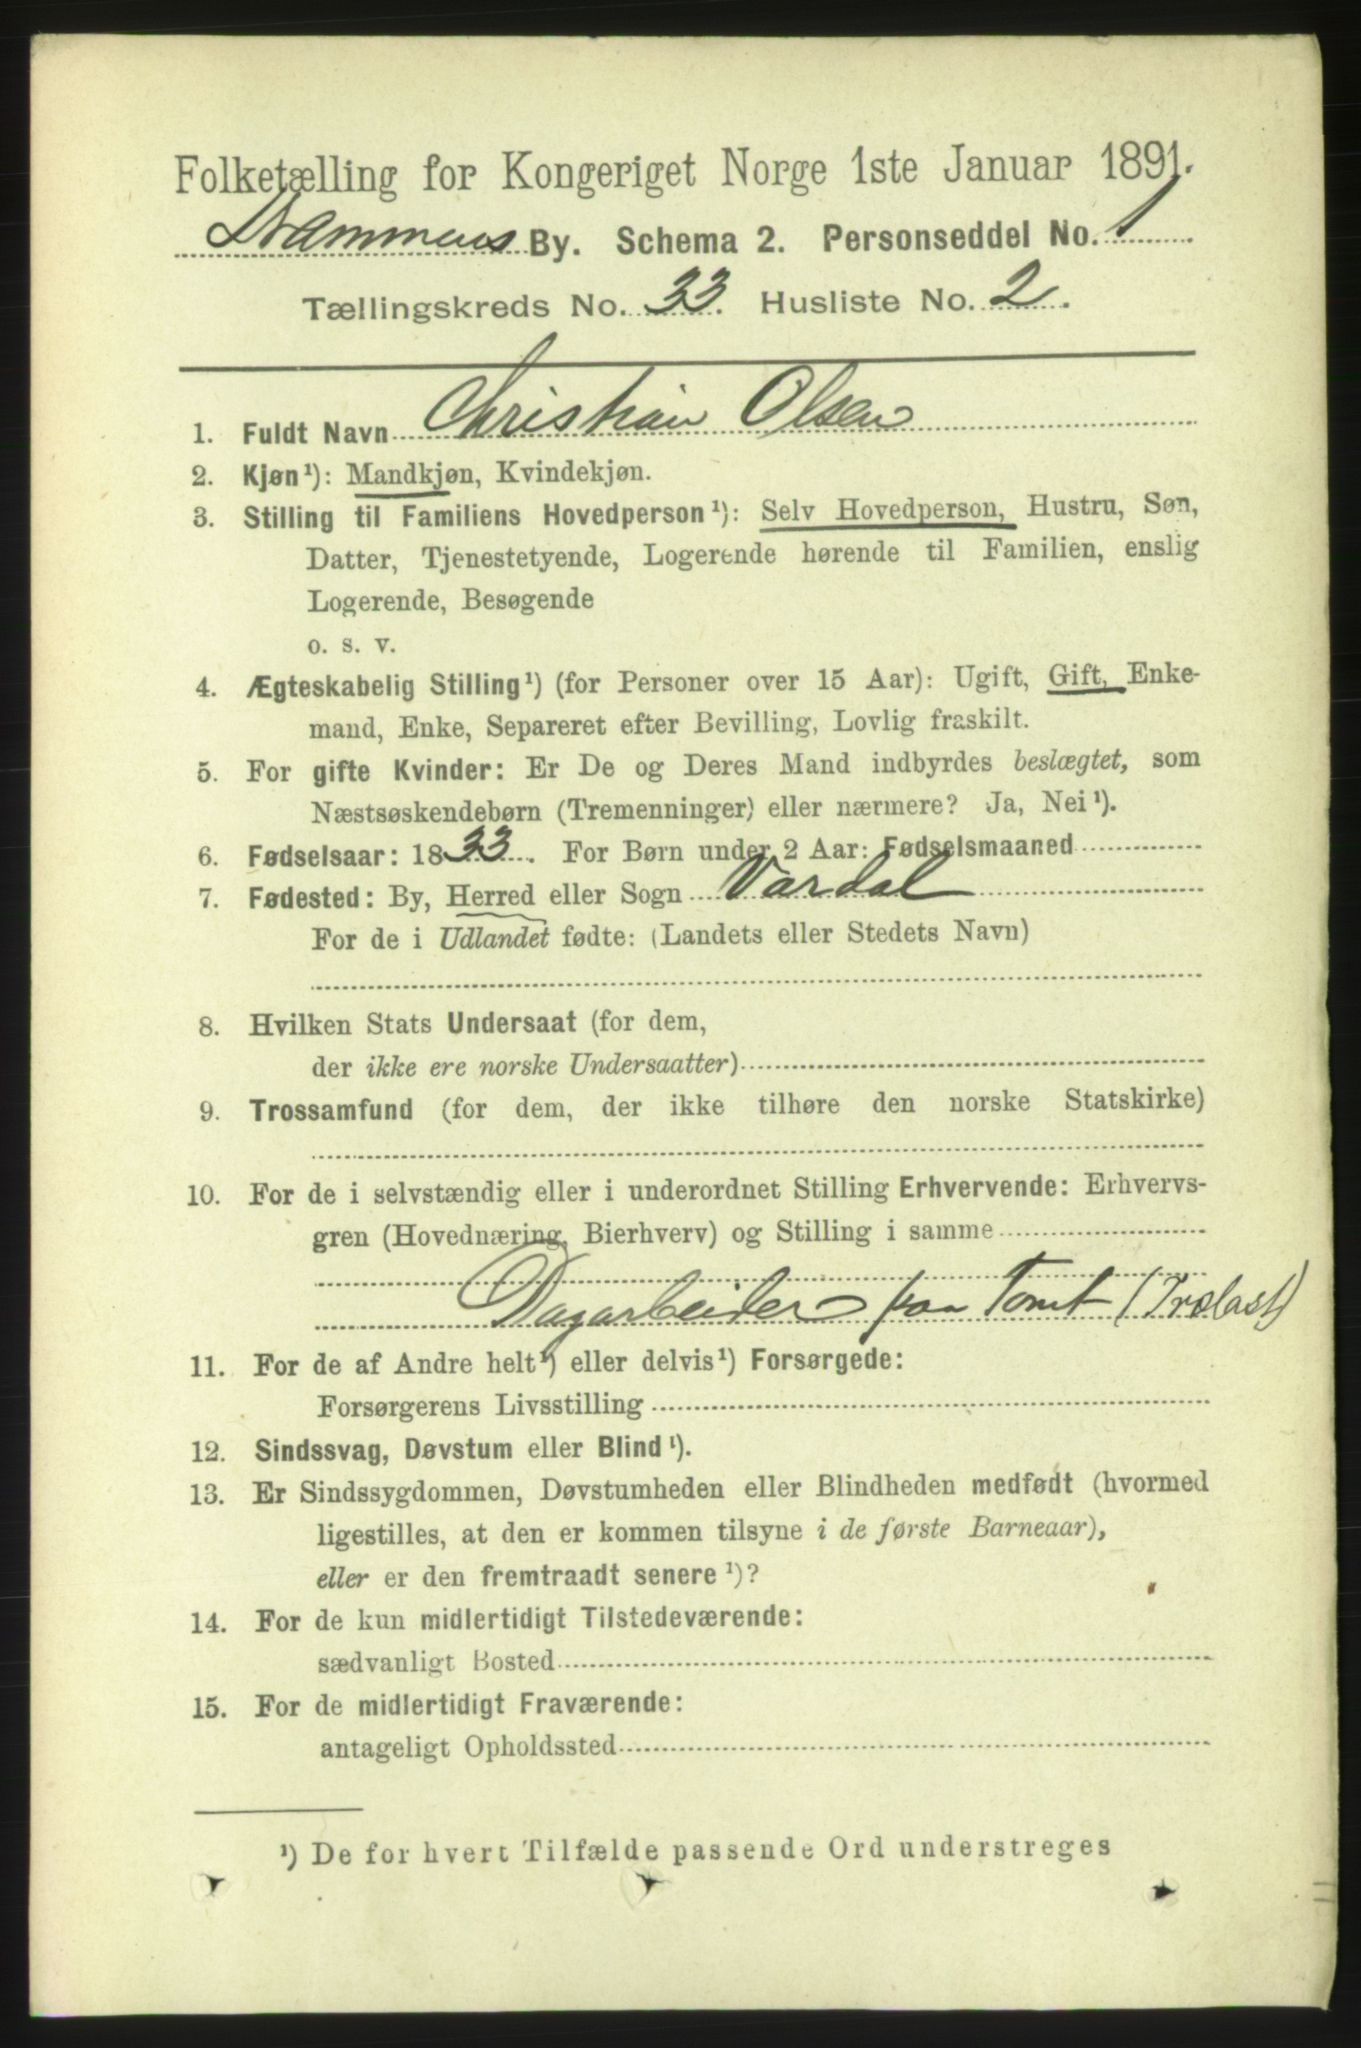 Folketælling for Kongeriget Norge 1ste Januar 1891.
Drammens By. Schema 2. Personseddel No. 1
Tællingskreds No. 33. Husliste No. 2.
1. Fuldt Navn Christian Olsen
2. Kjøn¹): Mandkjøn, Kvindekjøn.
3. Stilling til Familiens Hovedperson¹): Selv Hovedperson, Hustru, Søn,
Datter, Tjenestetyende, Logerende hørende til Familien, enslig
Logerende, Besøgende
o. s. v.
4. Ægteskabelig Stilling¹) (for Personer over 15 Aar): Ugift, Gift, Enke-
mand, Enke, Separeret efter Bevilling, Lovlig fraskilt.
5. For gifte Kvinder: Er De og Deres Mand indbyrdes beslægtet, som
Næstsøskendebørn (Tremenninger) eller nærmere? Ja, Nei¹).
6. Fødselsaar: 1833. For Børn under 2 Aar: Fødselsmaaned
7. Fødested: By, Herred eller Sogn Vardal
For de i Udlandet fødte: (Landets eller Stedets Navn)
8. Hvilken Stats Undersaat (for dem,
der ikke ere norske Undersaatter)
9. Trossamfund (for dem, der ikke tilhøre den norske Statskirke)
10. For de i selvstændig eller i underordnet Stilling Erhvervende: Erhvervs-
gren (Hovednæring, Bierhverv) og Stilling i samme
Dagarbeider paa Tomt (Trælast)
11. For de af Andre helt¹) eller delvis¹) Forsørgede:
Forsørgerens Livsstilling
12. Sindssvag, Døvstum eller Blind¹).
13. Er Sindssygdommen, Døvstumheden eller Blindheden medfødt (hvormed
ligestilles, at den er kommen tilsyne i de første Barneaar),
eller er den fremtraadt senere¹)?
14. For de kun midlertidigt Tilstedeværende:
sædvanligt Bosted
15. For de midlertidigt Fraværende:
antageligt Opholdssted
¹) De for hvert Tilfælde passende Ord understreges